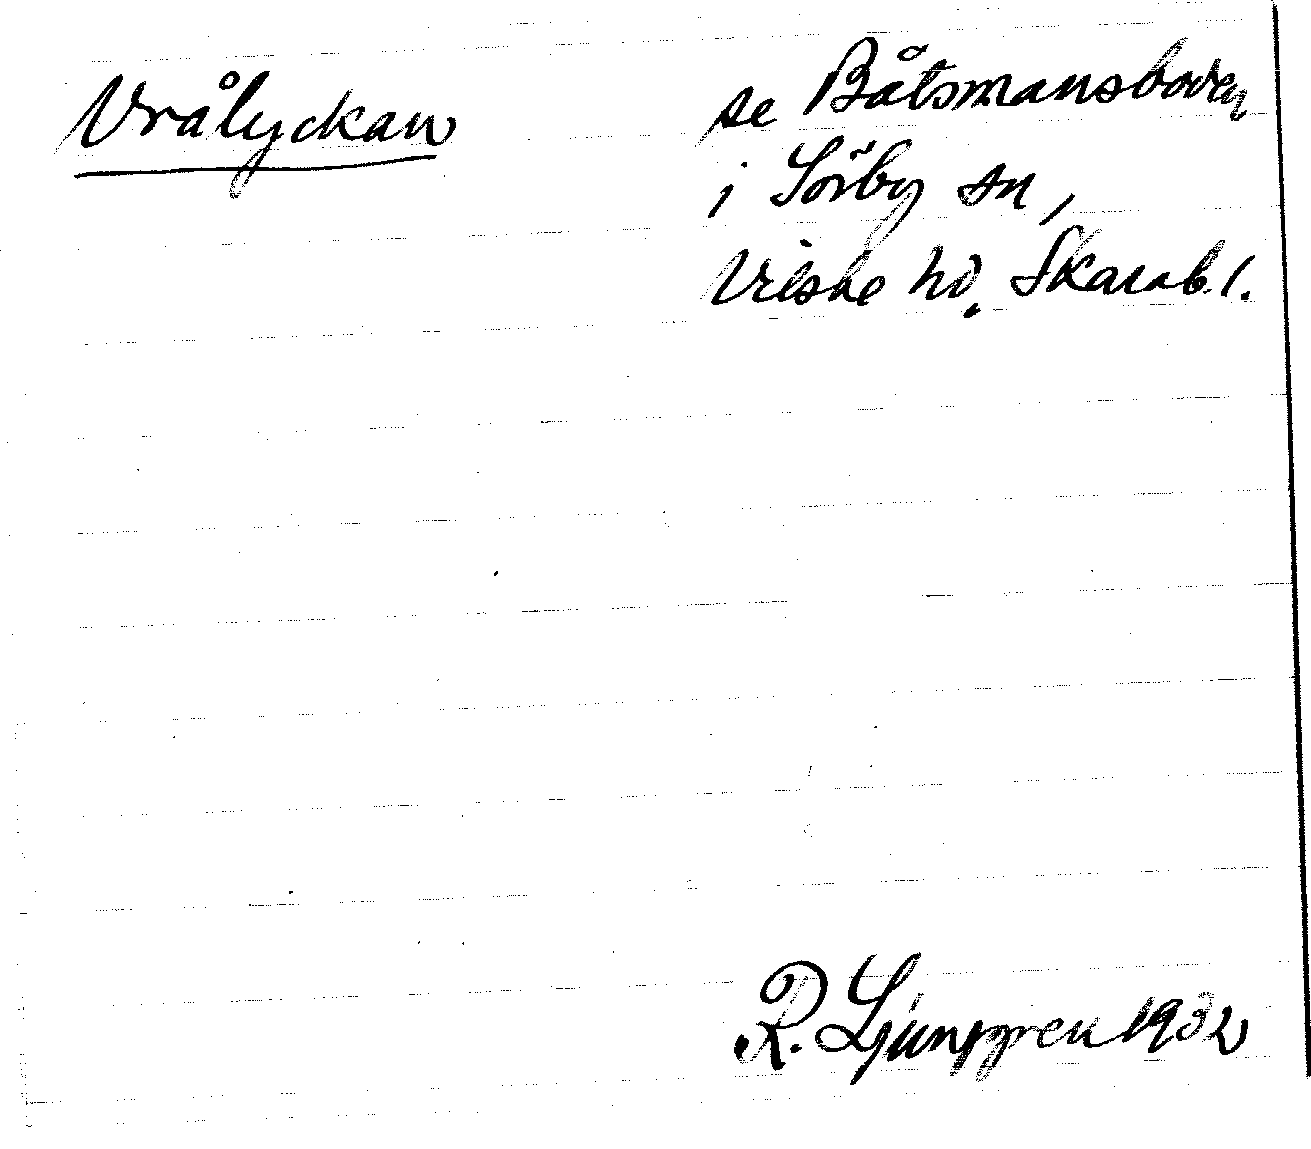 Vrålyckan
se Båtsmansboden
i Sörby sn,
Vilske hd. Skarab.l.
R. Ljunggren 1932